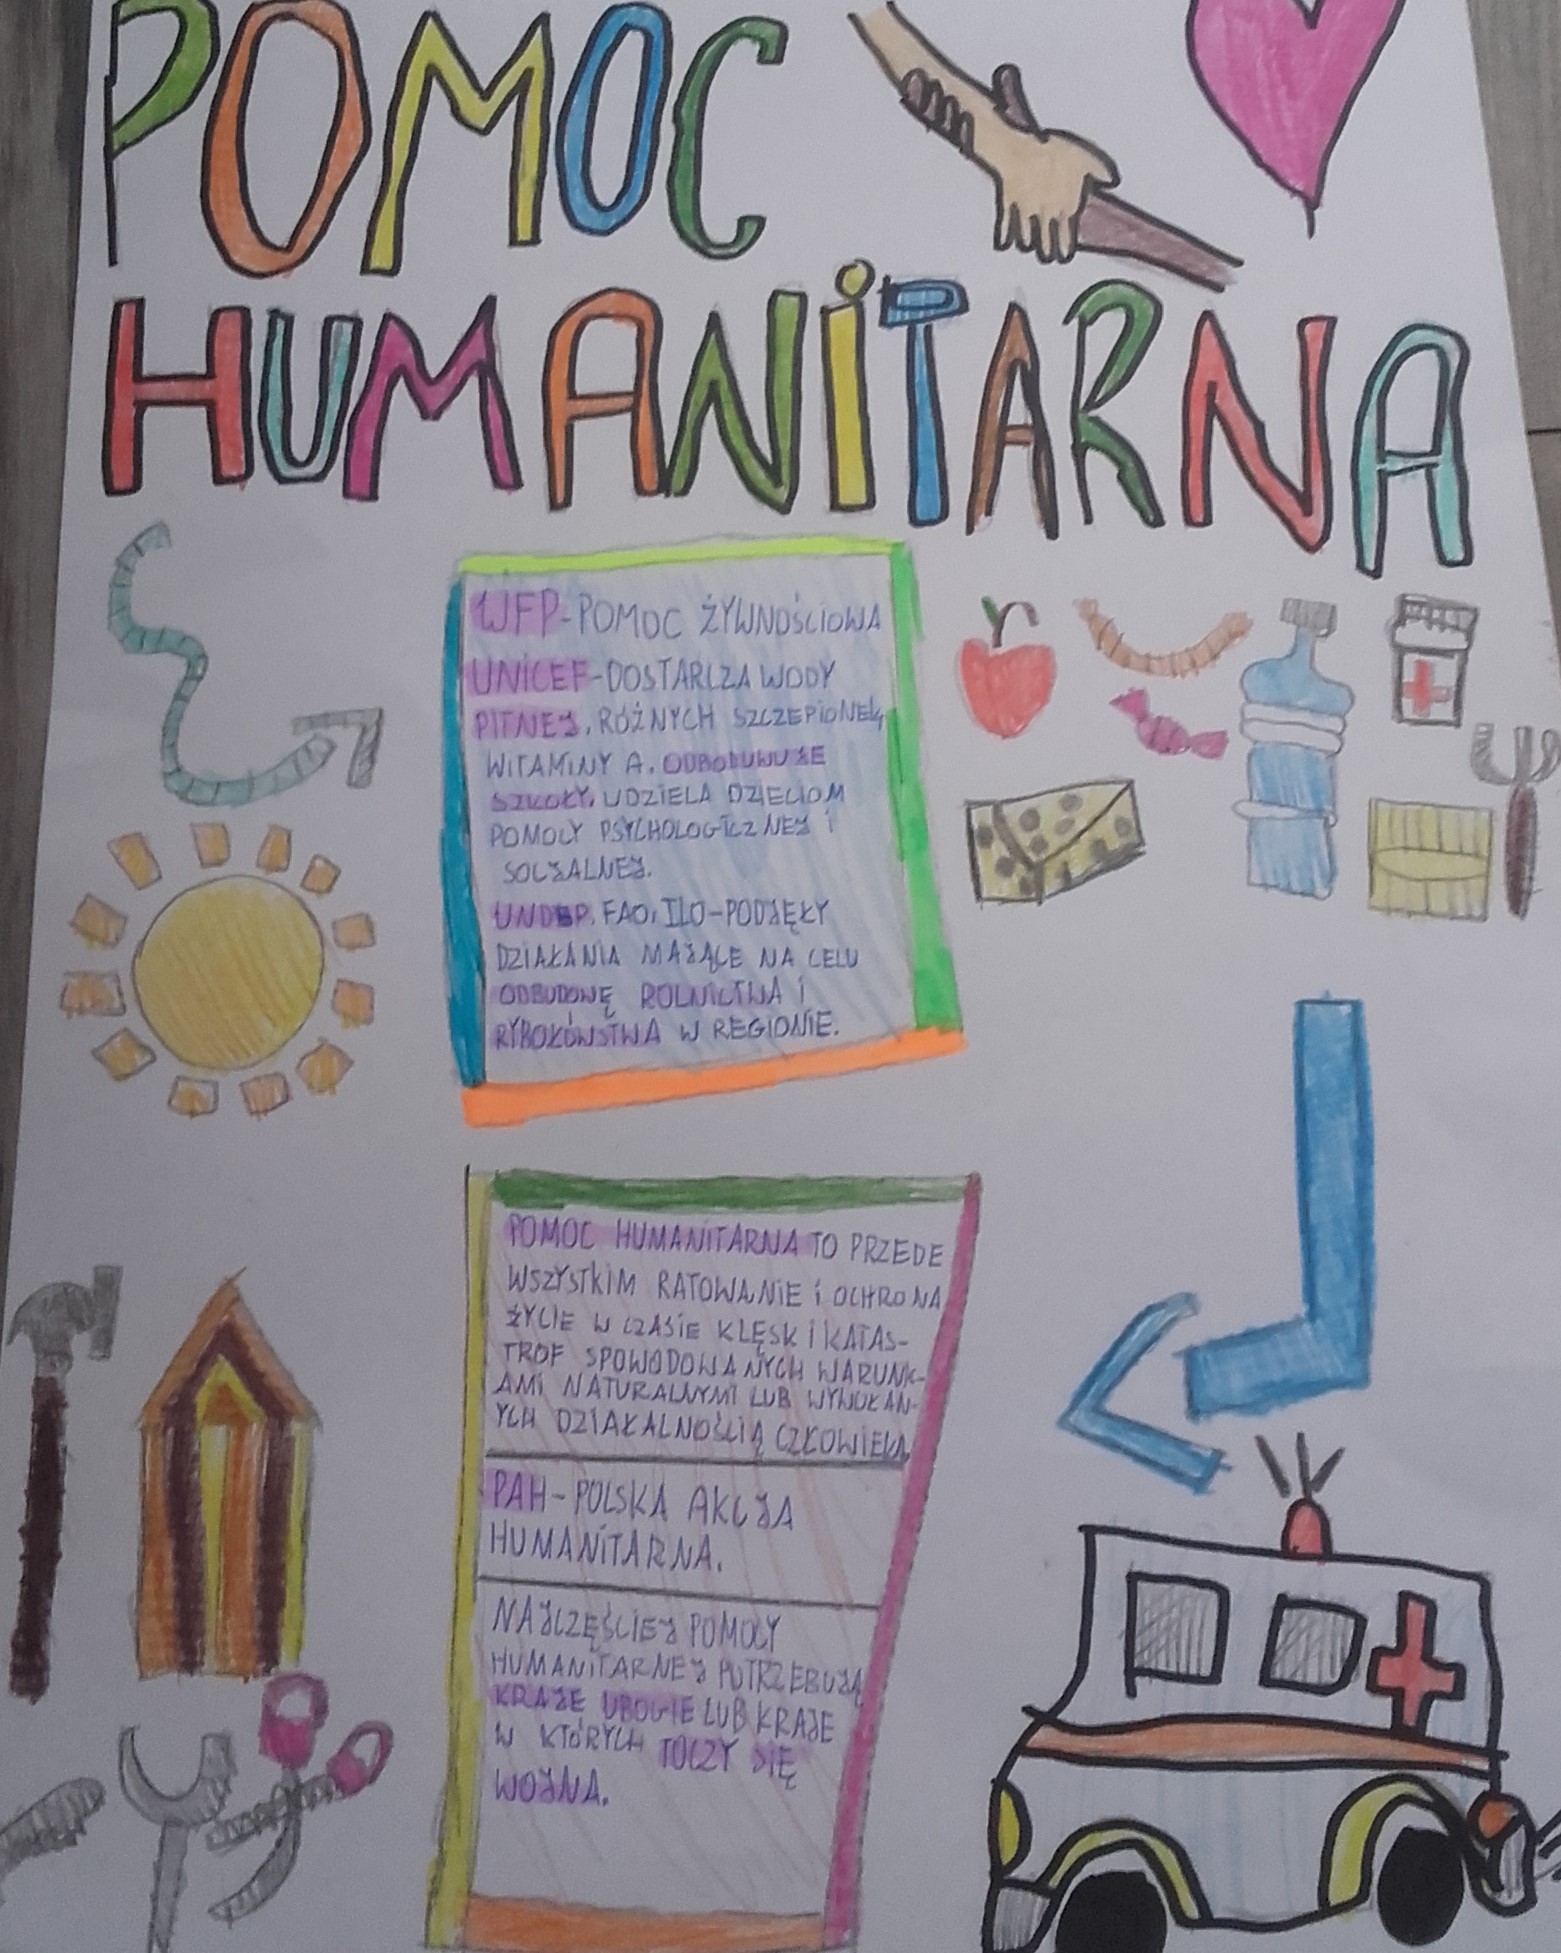 POMOC
HUMANiTARNA
WFP-POMOC ŻYWNOŚCIOWA
UNiCEF-DOSTARCZA WODY
PITNEJ, RÓŻNYCH SZCZEPiONEK,
WITAMINY A. ODBODUWUJE
SZKOŁY, UDZIELA DZIECIOM
POMOCY PSYCHOLOGICZNEJ i
SOCJALNEJ.
UNDP, FAO, ILO-PODJĘŁY
DZIAŁANIA MAJĄCE NA CELU
ODBUDOWĘ ROLNICTWA I
RYBOŁÓWSTWA W REGIONIE.
POMOC HUMANiTARNA TO PRZEDE
WSZYSTKIM RATOWANIE i OCHRONA
ŻYCIE W CZASIE KLĘSK i KATAS-
TROF SPOWODOWANYCH WARUNK-
AMI NATURALNYMI LUB WYWOŁAN-
YCH DZIAŁALNOŚCIĄ CZŁOWIEKA
PAH-POLSKA AKCJA
HUMANiTARNA.
NAJCZĘŚCIEJ POMOCY
HUMANiTARNEJ POTRZEBUJĄ
KRAJE UBOGIE LUB KRAJE
W KTÓRYCH TOCZY SIĘ
WOJNA.